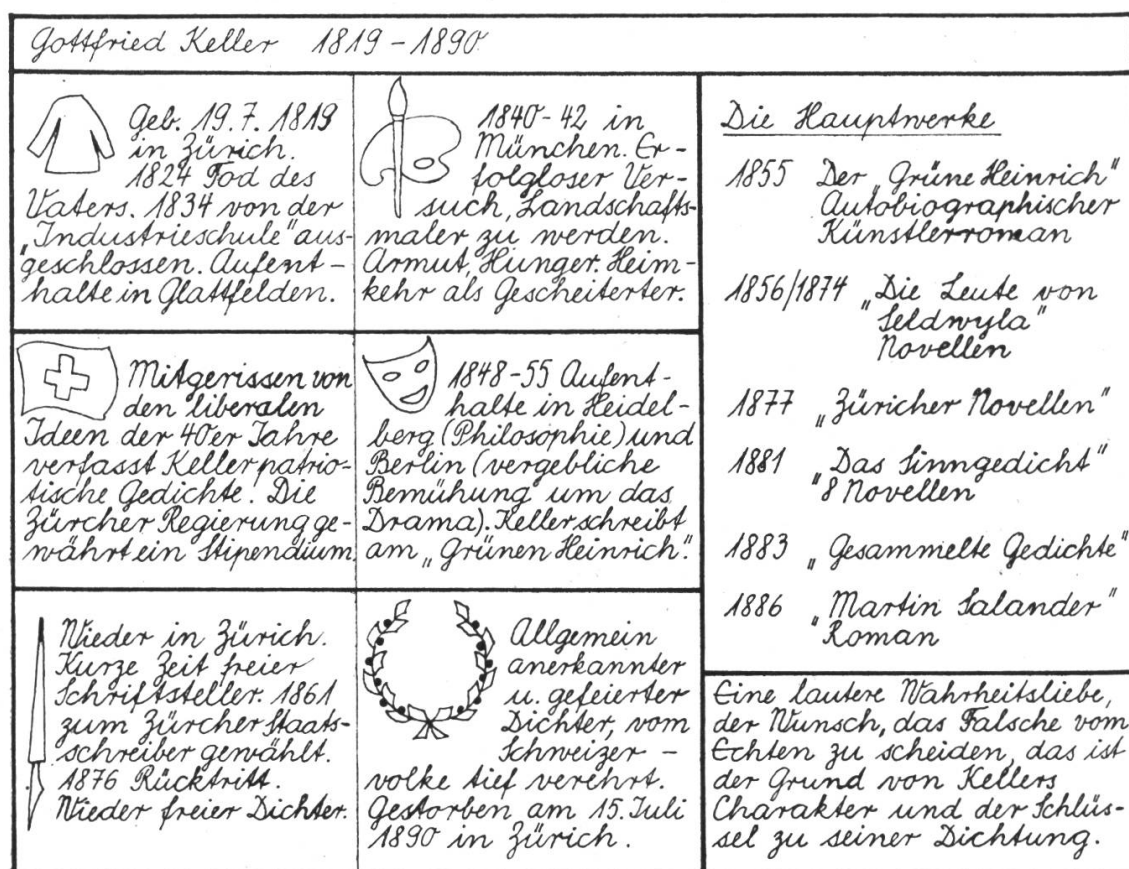 Gottfried Keller 1819 - 1890
Geb. 19.7.1819
in Zürich.
1824 Tod des
Vaters. 1834 von der
"Industrieschule" aus-
geschlossen. Aufent-
halte in Glattfelden.
1840-42 in
München. Er-
folgloser Ver-
such, Landschafts-
maler zu werden.
Armut, Hunger. Heim-
kehr als Gescheiterter.
Mitgerissen von
den liberalen
Ideen der 40er Jahre
verfasst Keller patrio-
tische Gedichte. Die
Zürcher Regierung ge-
währt ein Stipendium.
1848-55 Aufent-
halte in Heidel-
berg (Philosophie) und
Berlin (vergebliche
Bemühung um das
Drama). Keller schreibt
am „Grünen Heinrich".
Wieder in Zürich.
Kurze Zeit freier
Schriftsteller. 1861
zum Zürcher Staats-
schreiber gewählt.
1876 Rücktritt.
Wieder freier Dichter.
Allgemein
anerkannter
u. gefeierter
Dichter, vom
Schweizer -
volke tief verehrt.
Gestorben am 15. Juli
1890 in Zürich.
Die Hauptwerke
1855 Der „Grüne Heinrich"
Autobiographischer
Künstlerroman
1856/1874 „Die Leute von
Seldwyla"
Novellen
1877 „Züricher Novellen"
1881 „Das Sinngedicht"
8 Novellen
1883 „Gesammelte Gedichte"
1886 „Martin Salander"
Roman
Eine lautere Wahrheitsliebe,
der Wunsch, das Falsche vom
Echten zu scheiden, das ist
der Grund von Kellers
Charakter und der Schlüs-
sel zu seiner Dichtung.